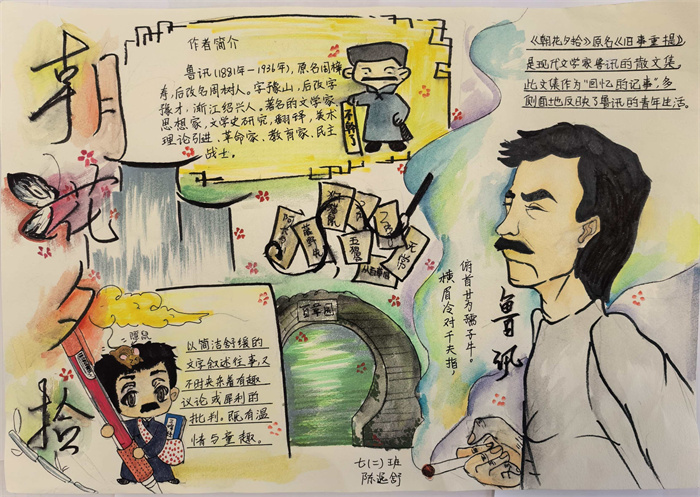 朝花夕拾
作者简介
鲁讯(1881年-1936年),原名周樟
寿,后改名周树人。字豫山,后改字
豫才,浙江绍兴人。著名的文学家
思想家,文学史研究,翻译,美术
理论引进、革命家、教育家、民主
战士。
《朝花夕拾》原名《旧事重提》
是现代文学家鲁讯的散文集,
此文集作为“回忆的记事”,多
侧面地反映了鲁讯的青年生活
五猖会
无常
俯首甘为孺子牛。
横眉冷对千夫指,
鲁讯
百草园
以简洁舒缓的
文字叙述往事,又
不时夹杂着有趣
议论或犀利的
批判。既有温
情与童趣。
七(二)班